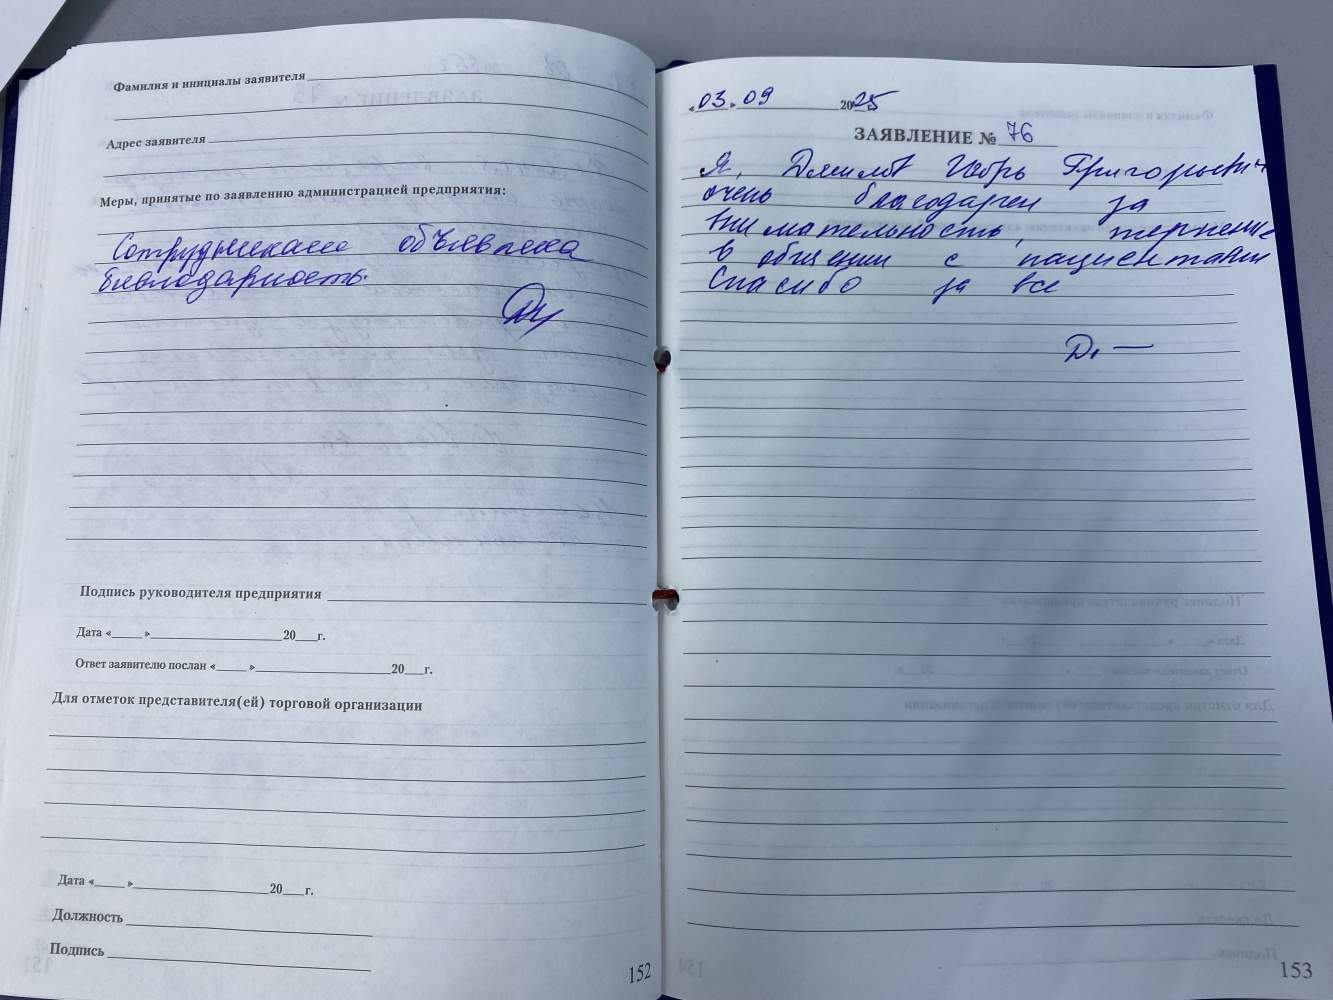 Фамилия и инициалы заявителя
Адрес заявителя
Меры, принятые по заявлению администрацией предприятия:
Сотрудникам объявлена
благодарность.
Подпись руководителя предприятия
Дата «____ »____________________20___г.
Ответ заявителю послан «____ »____________________20___г.
Для отметок представителя(ей) торговой организации
Дата «____ »____________________20___г.
Должность
Подпись
152
«03» 09 2025
ЗАЯВЛЕНИЕ № 76
Я, Григорьевич
очень благодарен за
внимательность, терпение
в общении с пациентами
Спасибо за все
153